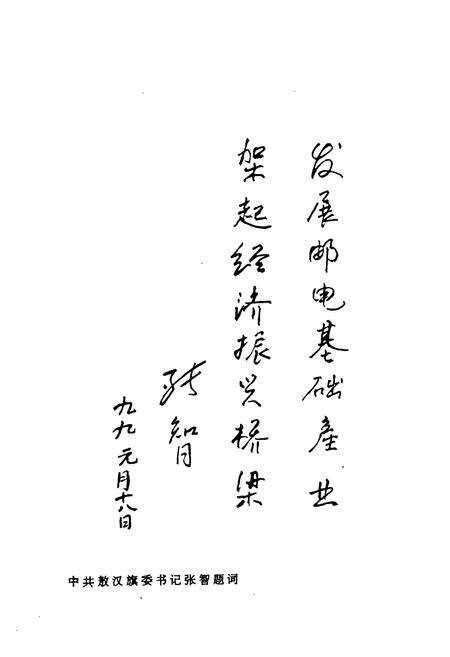 发展邮电基础產业
架起经济振兴桥梁
张智
九九元月十八日
中共敖汉旗委书记张智题词